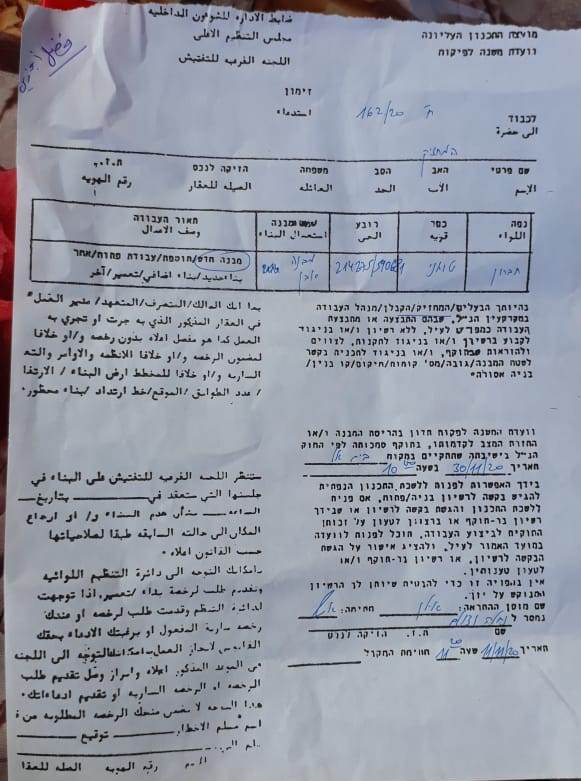 ضابط الادارة للشوءون الداخلية
مجلس التنظيم الاعلى
اللجنه الفرعيه للتفتيش
מועצת התכנון העליונה
וועדת משנה לפיקוח
זימון
استدعاء
ח' 162/20
לכבוד
الى حضرة
המחזיק
שם פרטי האב הסב משפחה הזיקה לנכס ת.ז.
الاسم الأب الجد العائله الصله للعقار رقم الهويه
נפה כפר רובע שימוש מבנה תאור העבודה
اللواء قريه الحي استعمال البناء وصف الاعمال
חברון טוואני מבנה מבנה חדש/תוספת/עבודת פתוח/אחר
بناء جديد/بناء اضافي/تعمير/آخر
בהיותך הבעלים/המחזיק/הקבלן/מנהל העבודה
במקרקעין הנ"ל, שבהם התבצעה או מתבצעת
העבודה כמפורט לעיל, ללא רשיון ו/או בניגוד
לקבוע ברשיון ו/או בניגוד לתקנות, לצווים
ולהוראות שבתוקף, ו/או בניגוד לתכנית בקשר
לשטח המבנה/גובה/מס' קומות/מיקום/קו בנין/
בניה אסורה*
بما انك المالك/المتصرف/المتعهد/مدير العمل*
في العقار المذكور الذي به جرت او تجري به
العمل كما هو مفصل اعلاه بدون رخصه و/او خلافا
لمضمون الرخصه و/او خلافا للانظمه والاوامر
الساريه و/او خلافا للمخطط ارض البناء /
/ عدد الطوابق/الموقع/خط ارتداد/بناء محظور.
וועדת המשנה לפקוח תדון בהריסת המבנה ו/או
החזרת המצב לקדמותו, בתוקף סמכותה לפי החוק
הנ"ל בישיבתה שתתקיים במקום בית אל
תאריך 30/11/20 בשעה 10:00
בידך האפשרות לפנות ללשכת התכנון הנפתית
להגיש בקשה לרשיון בניה/פתוח, אם פנית
ללשכת התכנון והגשת בקשה לרשיון או שבידך
רשיון בר-תוקף או ברצונך לטעון על זכותך
החוקית לביצוע העבודה, תוכל לפנות לוועדה
במועד האמור לעיל, ולהציג אישור על הגשת
הבקשה לרשיון, או רשיון בר-תוקף ו/או
לטעון טענותיך.
אין בהפניה זו כדי להבטיח שיותן לך הרשיון
המבוקש על יון.
שם מוסר ההתראה: חתימה:
נמסר ל
שם ת.ז. הזיקה לנכס
תאריך 11/11/20 שעה 11 חתימת המקבל
ستنظر اللجنه الفرعيه للتفتيش طى البناء في
جلستها التي ستعقد في بتاريخ
الساعه بشأن هدم البناء و/ او ارجاع
المكان الى حالته السابقه طبقا لصلاحياتها
حسب القانون اعلاه.
بامكانك التوجه الى دائرة التنظيم اللوائيه
وتقديم طلب لرخصة بناء/تعمير، اذا توجهت
لدائرة التنظيم وقدمت طلب لرخصه او عندك
رخصه سارية المفعول او برغبتك الادعاء بحقك
القانوني لانجاز العمل، بامكانك التوجه الى اللجنه
في الموعد المذكور اعلاه وابراز وصل تقديم طلب
الرخصه او الرخصه الساريه او تقديم ادعاءاتك.
هذا التوجه لا يضمن منحك الرخصه المطلوبه
اسم مسلم الاخطار توقيع
الاسم رقم الهويه الصله للعقار